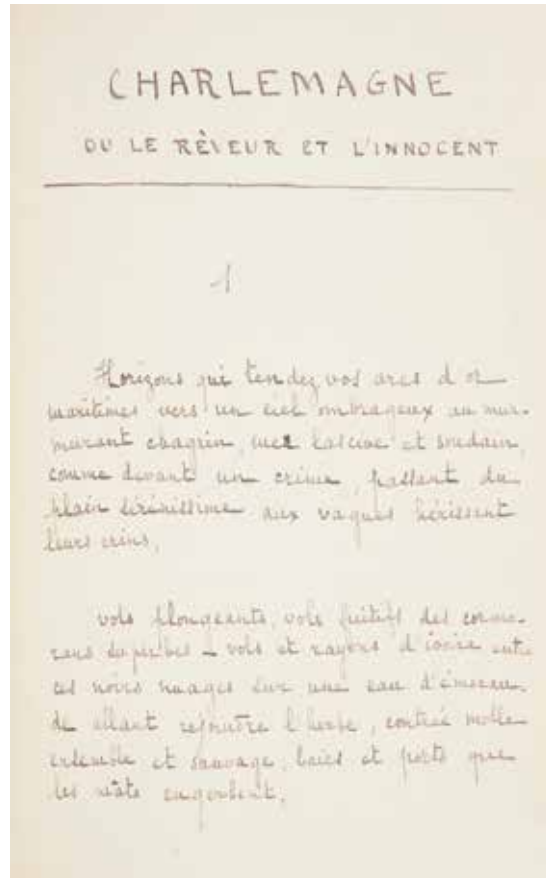 CHARLEMAGNE
OU LE RÊVEUR ET L'INNOCENT
1
Horizons qui tendez vos arcs d'or
maritimes vers un ciel ombrageux au mur-
murant chagrin, mer lascive et soudain,
comme devant un crime, passant du
plain sérénissime aux vagues hérissent
leurs crins,
vols plongeants, vols furtifs des cormo-
rans superbes – vols et rayons d'ivoire entre
ces noirs nuages sur une eau d'émerau-
de allant rejoindre l'herbe, contrée molle
ensemble et sauvage, baies et ports que
les mâts engerbent,